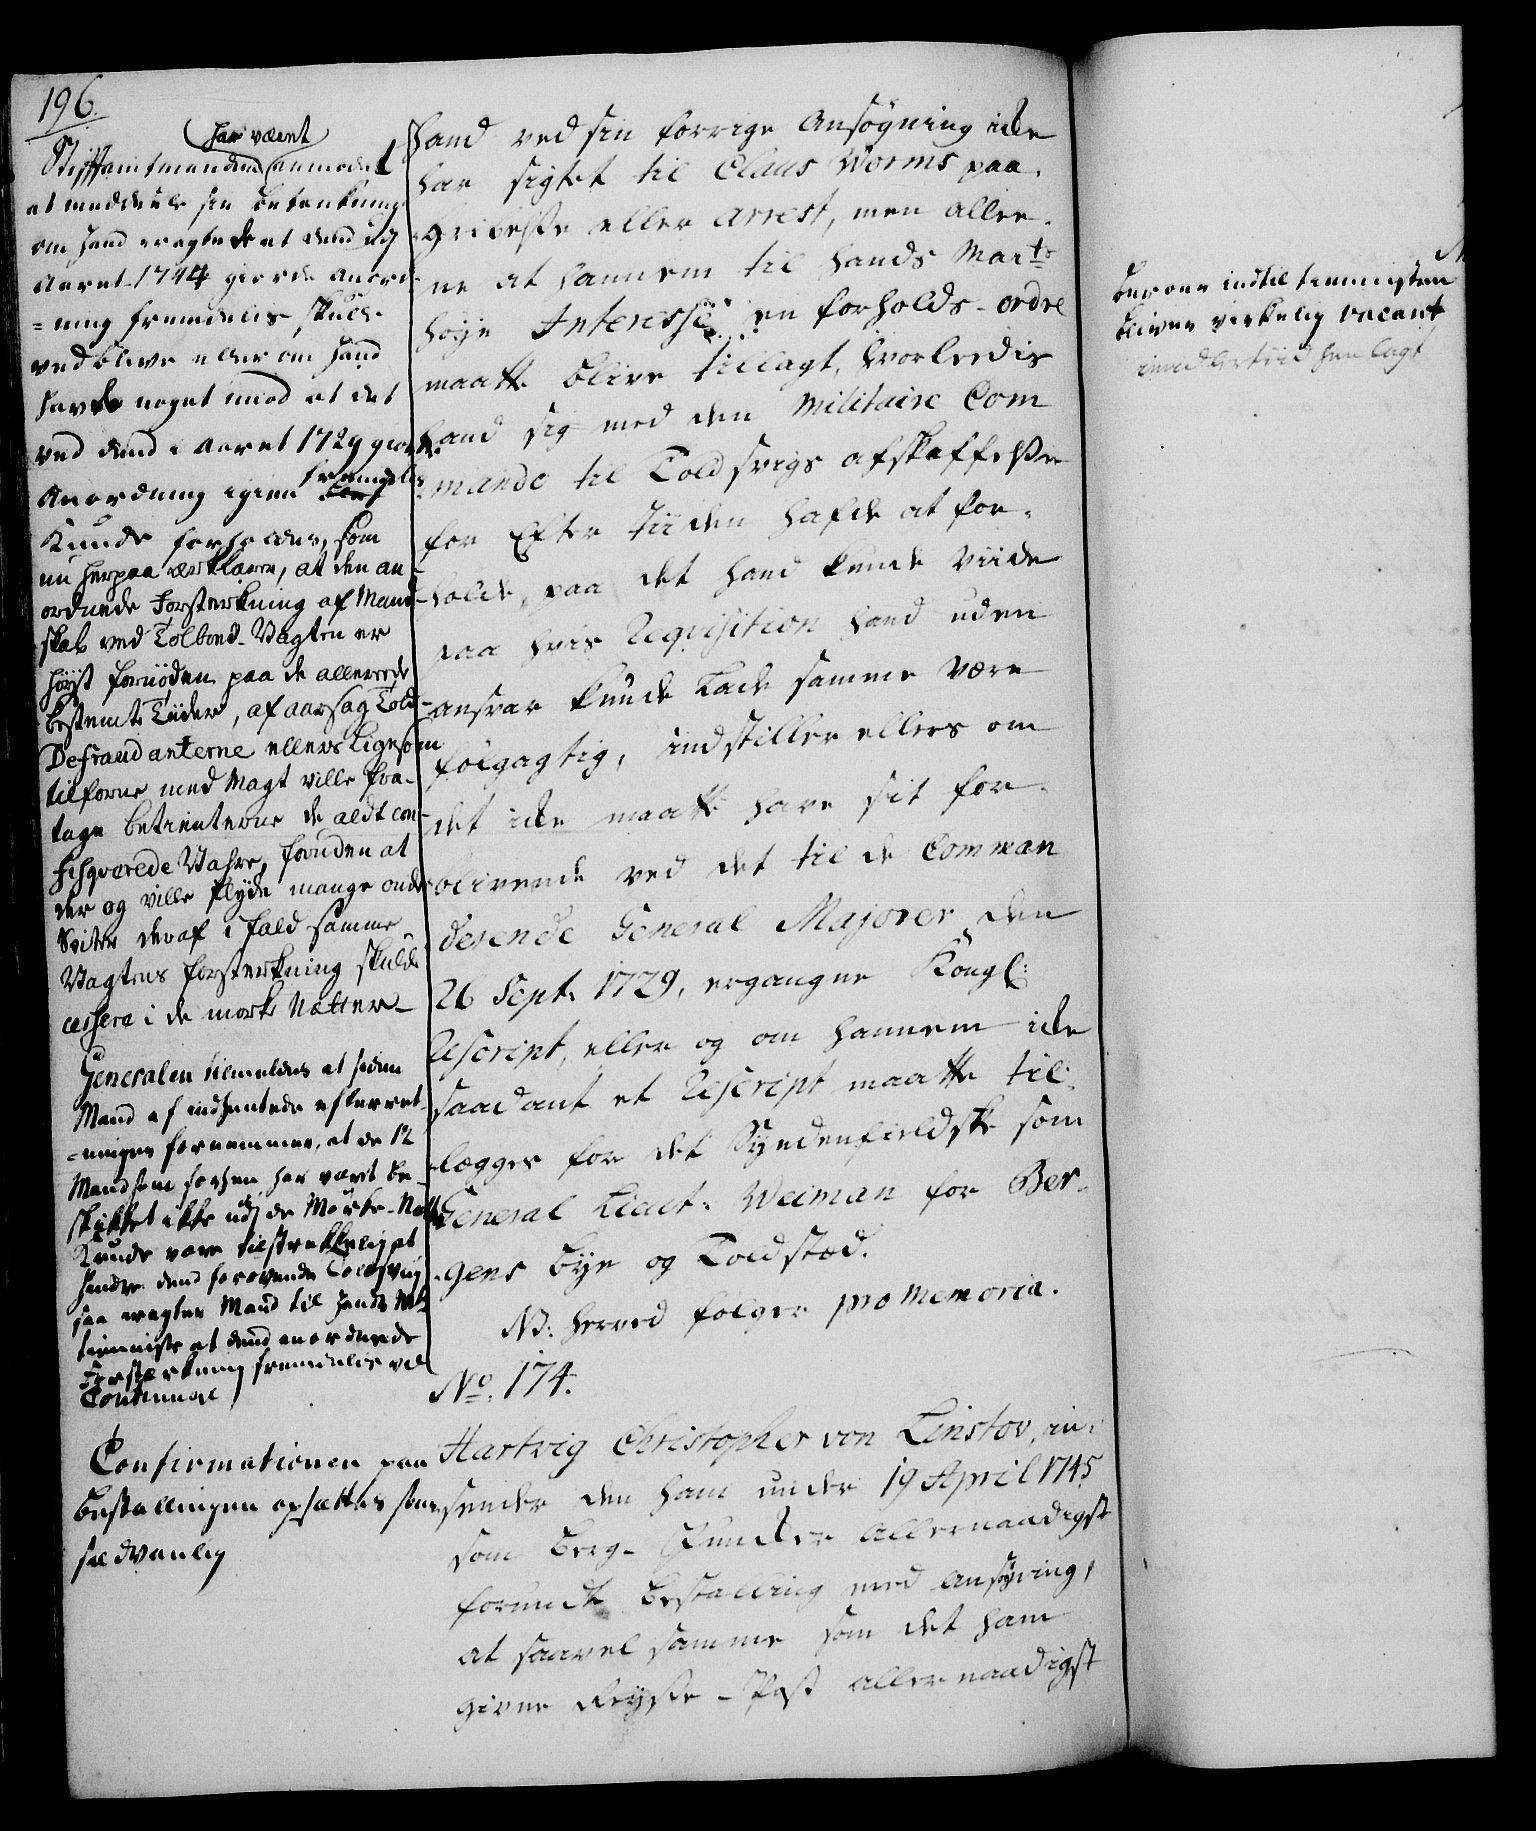 196.
har været
Stiftamtmanden anmodet
at meddeele sin betenkning
om hand eragtede at dend udj
Aaret 1744 giorde anord-
=ning fremdelis skulde
vedblive eller om hand
havde noget imod at det
ved dend i Aaret 1729 giorde
Anordning igien fremdelis
Kunde forholdes, som
nu herpaa erklærer, at den an
ordnede Forsterkning af Mand-
skab ved Tolboed-Vagten er
høyst fornøden paa de allerrede
bestemte Tiider, af aarsag Told-
Defraudanterne ellers ligesom
tilforne med Magt ville fra-
tage betienterne de aldt con-
fisqverede Vahre, foruden at
der og ville flyde mange onde
Sviter deraf i fald samme
Vagtens forsterkning skulde
cessere i de mørke Nætter-
Generalen tilmeldes at siden
Mand af indhentede efterret-
=ninger fornemmer, at de 12
Mand som forhen har været be-
skikket ikke udj de Mørke-Nætter
Kunde være tilstrekkelig at
hindre dend forøvende Toldsvig
saa eragter Mand til hands Mts
tienniste at dend anordnede
Forsterkning fremdelis vil
Continuere
Confirmationen paa
bestallingen opsættes som
sædvanlig
hand ved sin forrige Ansøgning icke
har sigtet til Claus Worms paa-
Gribelse eller Arrest, men allee-
ne at hannem til hands Maits
høye Interesse en forholds-ordre
maatte blive tillagt, hvorledis
hand sig med den Militaire Com
mando til Toldsvigs afskaffelse
for Efter tiiden hafde at for-
holde, paa det hand kunde viide
paa hvis Reqvisition hand uden
ansvar kunde lade samme være
følgagtig, indstiller ellers om
det icke maatte have sit for-
blivende ved det til de Comman
derende General Majorer den
26 Sept: 1729, ergangne Kongl:
Rescript, eller og om hannem icke
saadant et Rescript maatte til-
lægges for det Syndenfieldske som
General Lieut: Weiman for Ber-
gens bye og Toldsted.
NB: herved følger pro memoria.
No. 174.
Hartvig Christopher von Linstov, in-
sender den ham under 19 April 1745
som Berg-Juncker Allernaadigst
forundte bestalling med Ansøgning,
at saavel samme som det ham
givne Reyse-Pass allernaadigst
beroer indtil tiennisten
bliver virkelig vacant
imidlertiid hen lagt